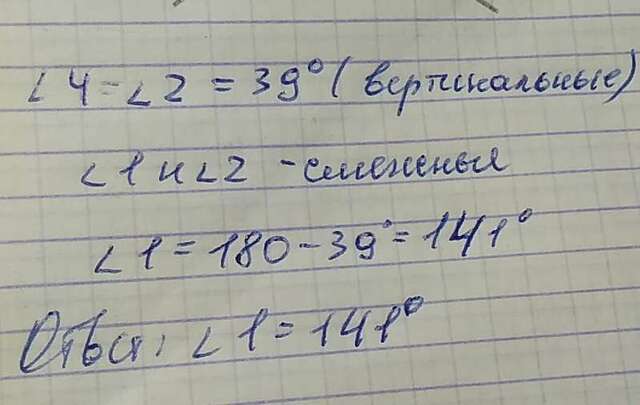 ∠4 = ∠2 = 39° (вертикальные)
∠1 и ∠2 - смежные
∠1 = 180 - 39° = 141°
Ответ: ∠1 = 141°